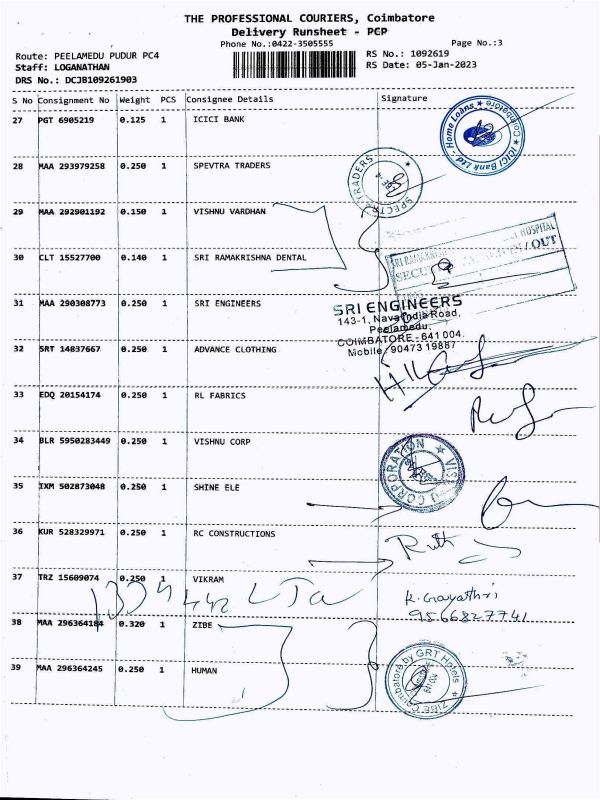 THE PROFESSIONAL COURIERS, Coimbatore
Delivery Runsheet - PCP
Phone No.:0422-3505555 Page No.:3
Route: PEELAMEDU PUDUR PC4 RS No.: 1092619
Staff: LOGANATHAN RS Date: 05-Jan-2023
DRS No.: DCJB109261903
S No Consignment No Weight PCS Consignee Details Signature
27 PGT 6905219 0.125 1 ICICI BANK
ICICI Bank Ltd - Home Loans Coimbatore
28 MAA 293979258 0.250 1 SPEVTRA TRADERS
SPECTRA TRADERS
29 MAA 292901192 0.150 1 VISHNU VARDHAN
30 CLT 15527700 0.140 1 SRI RAMAKRISHNA DENTAL
HOSPITAL
IN / OUT
31 MAA 290308773 0.250 1 SRI ENGINEERS
SRI ENGINEERS
143-1, NavaIndia Road,
Peelamedu,
COIMBATORE - 641 004.
Mobile: 90473 19887
32 SRT 14837667 0.250 1 ADVANCE CLOTHING
33 EDQ 20154174 0.250 1 RL FABRICS
34 BLR 5950283449 0.250 1 VISHNU CORP
VISHNU CORPORATION
35 IXM 502873048 0.250 1 SHINE ELE
36 KUR 528329971 0.250 1 RC CONSTRUCTIONS
37 TRZ 15609074 0.250 1 VIKRAM
K. Gayathri
9566827741
38 MAA 296364184 0.320 1 ZIBE
39 MAA 296364245 0.250 1 HUMAN
ZIBE Coimbatore by GRT Hotels